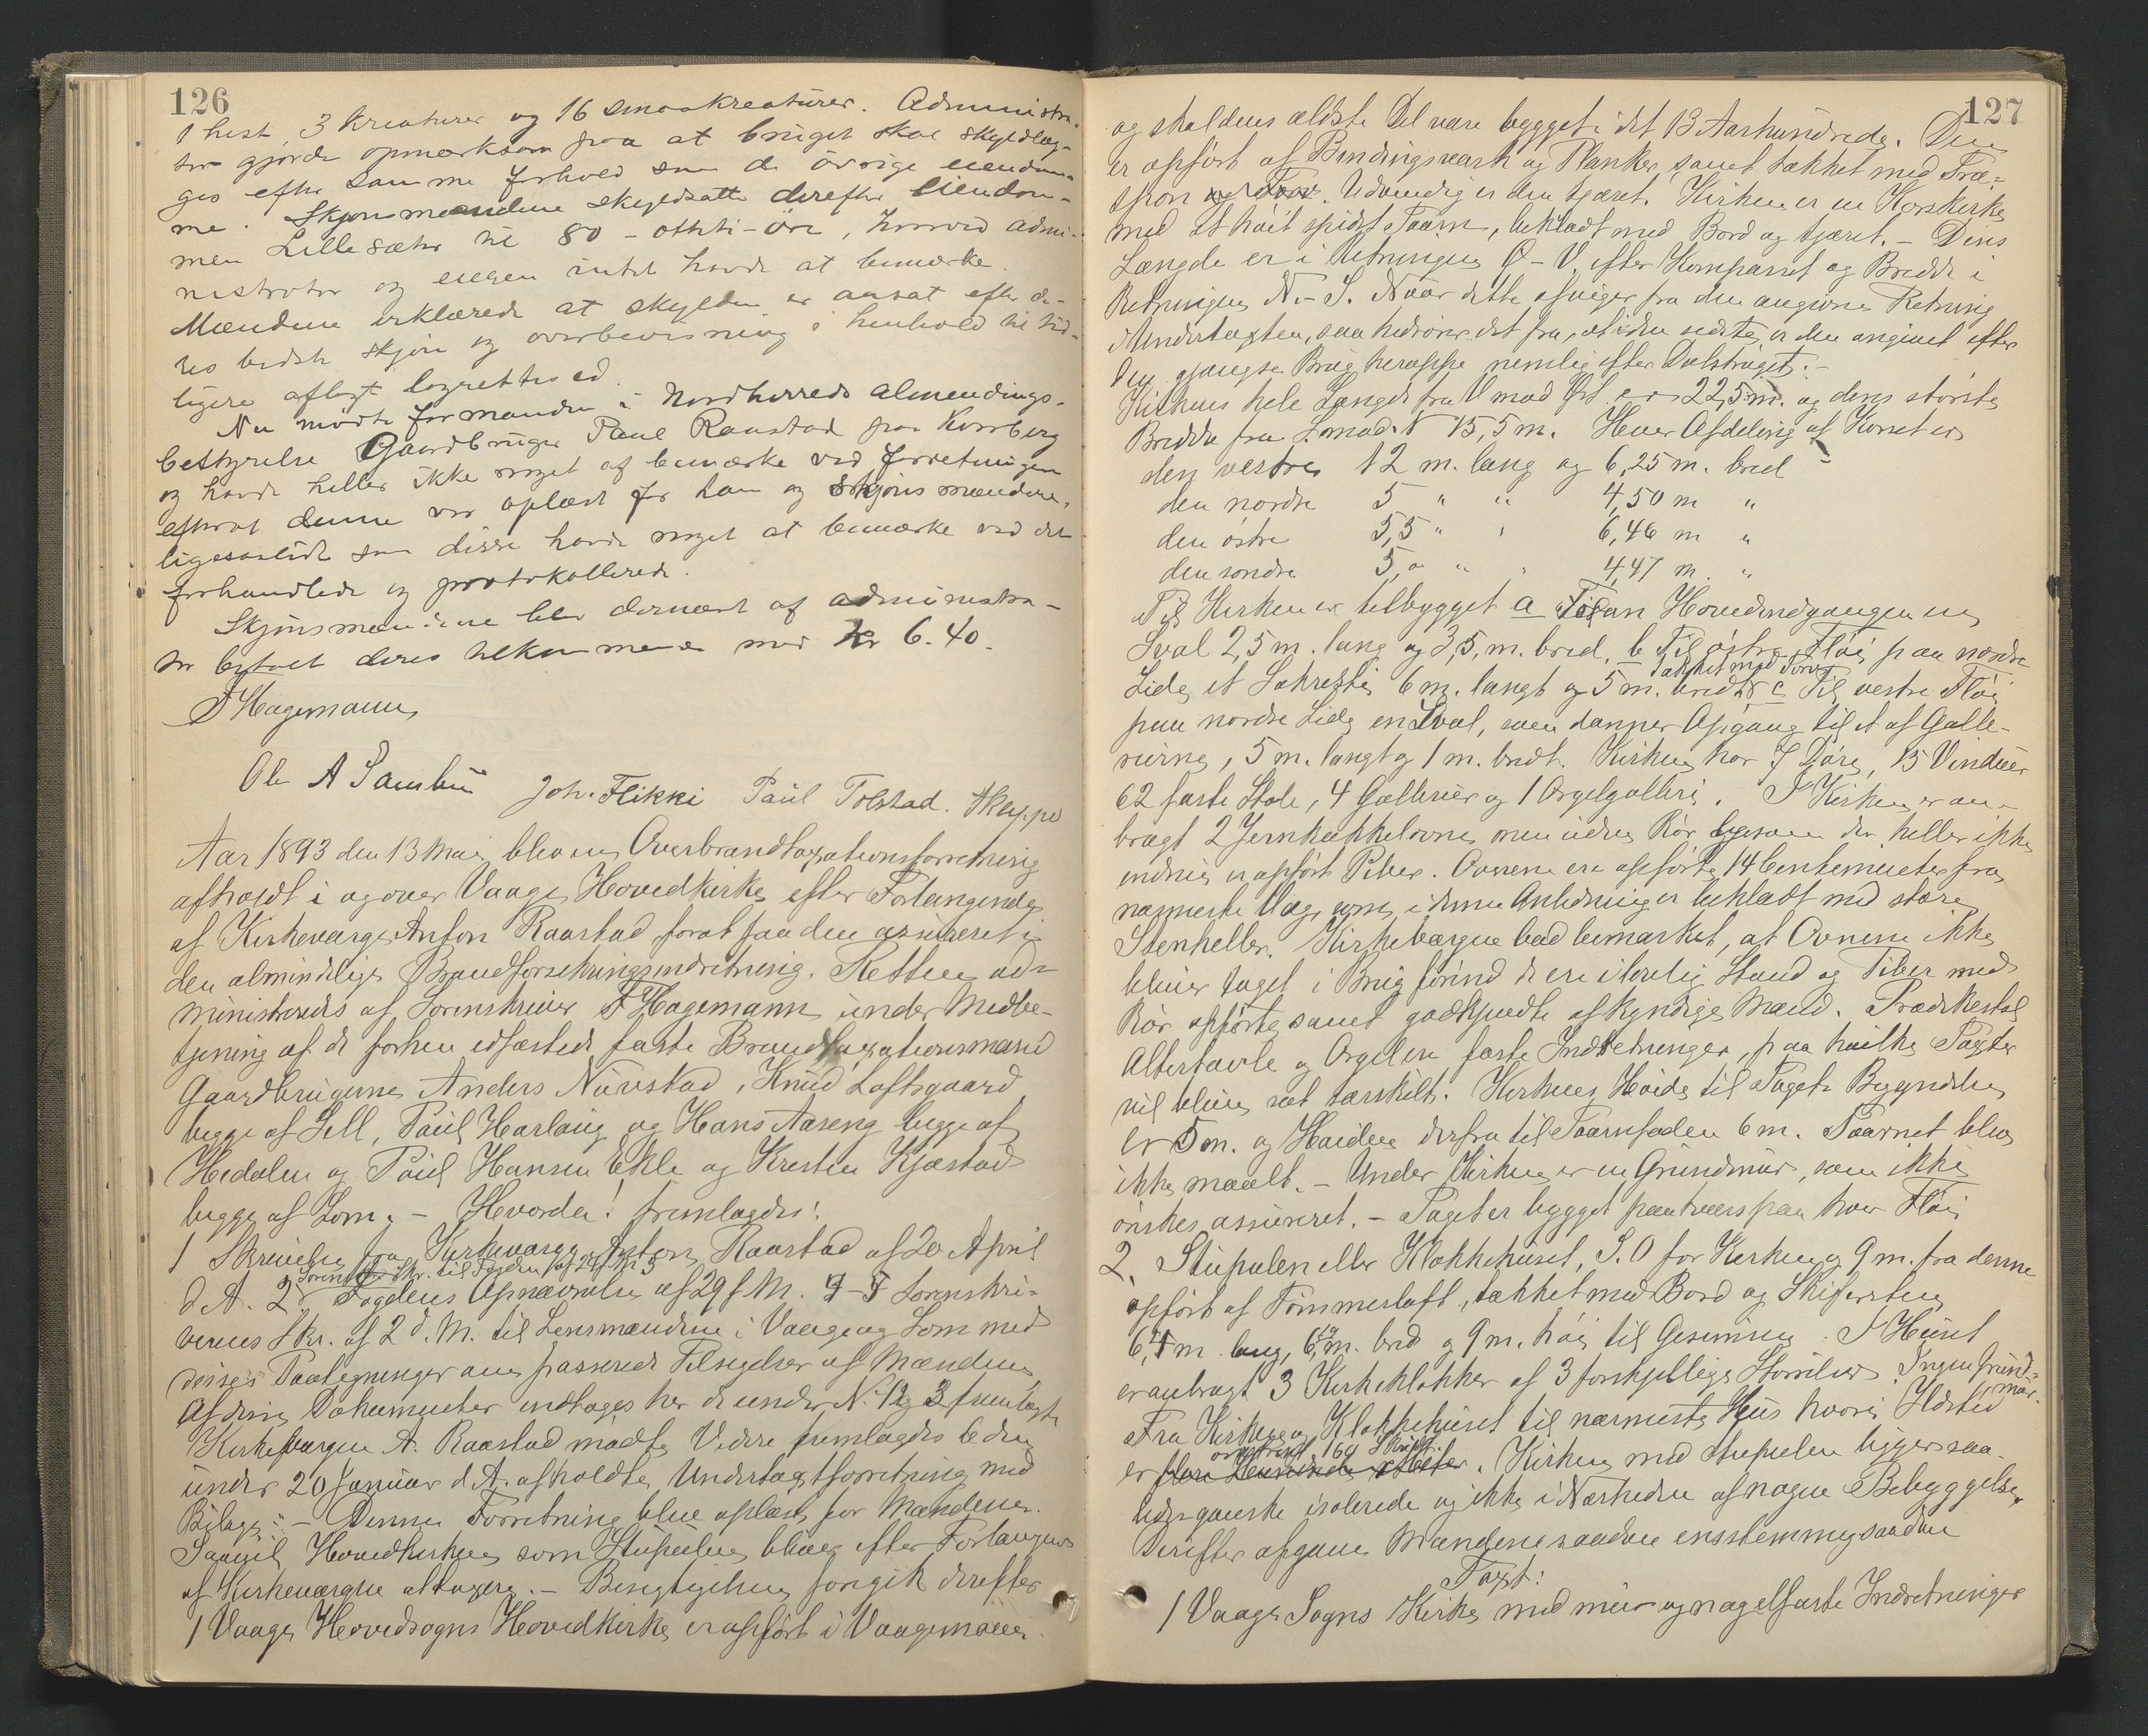 126
1 hest, 3 kreaturer og 16 smaakreaturer. Administra-
tor gjorde opmærksom paa at bruget skal skyldlæg-
ges efter samme forhold som de övrige eiendom-
me. Skjønsmændene skyldsatte derefter eiendom-
men Lillesæter til 80 - otteti - öre, hvorved admi-
nistrator og eieren intet havde at bemærke.
Mændene erklærede at skylden er ansat efter de-
res bedste skjön og overbevisning i henhold til tid-
ligere aflagt lagrettesed.
Nu mödte formanden i Nordherreds almendings-
bestyrelse Gaardbruger Paul Raastad fra
og havde heller ikke noget at bemærke ved forretningen
efterat denne var oplæst for ham og skjönsmændene,
ligesaalidt som disse havde noget at bemærke ved det
forhandlede og protokollerede.
Skjönsmændene blev dernæst af administra-
tor betalt deres tilkommende med kr 6.40.
F Hagemann
Ole A Sambu Joh. Flikki Paul Tolstad. Skeppe
Aar 1893 den 13 Mai blev en Overbrandtaxationsforretning
afholdt i og over Vaage Hovedkirke efter Forlangende
af Kirkeværge Anton Raastad forat faa den assureret i
den almindelige Brandforsikringsindretning. Retten ad-
ministreredes af Sorenskriver F Hagemann under Medbe-
tjening af de forhen edfæstede faste Brandtaxationsmænd
Gaardbrugerne Anders Nürstad, Knud Loftsgaard
begge af Sell, Paul Harlaug og Hans Aaseng begge af
Hedalen og Paul Hansen Ekle og Kristen Kjæstad
begge af Lom. - Hvorda! fremlagdes:
1 Skrivelse fra Kirkeværge Anton Raastad af 20 April
d A. 2 Sorenskr. skr. til Fogden af 24 f M 3
Fogdens Opnævnelse af 29 f M. 4 - Sorenskri-
verens Skr. af 2 d. M. til Lensmændene i Vaage og Lom med
disses Paategninger om passerede Tilsigelser af Mændene
Af disse Dokumenter indtages her de under No 1 2 og 3 fremlagte
Kirkeværgen A. Raastad mødte Videre fremlagdes den
under 20 Januar d. A. afholdte Undertaxtforretning med
Bilage: - Denne Forretning blev oplæst for Mændene.
Saavel Hovedkirken som Stupulen bliver efter Forlangende
af Kirkeværgen at taxere. - Besigtigelsen foregik derefter
1 Vaage Hovedsogns Hovedkirke er opført i Vaagemoen
127
og skal dens ældste Del være bygget i det 13 Aarhundrede. Den
er opført af Bindingsværk og Planker, samt tækket med Træ-
spon. Udvendig er den tjæret. Kirken er en Korskirke
med et høit spidst Taarn, beklædt med Bord og tjæret. - Dens
Længde er i Retningen Ø - V. efter Kompasset og Bredde i
Retningen N - S. Naar dette afviger fra den angivne Retning
i Undertaxten, saa hidrører det fra, at i den sidste er den angivet efter
den gjængse Brug heroppe nemlig efter Dalstrøget. -
Kirkens hele Længde fra V mod Øst er 22,5 m. og dens største
Bredde fra S. mod N 15,5 m. Hver Afdeling af Korset er
den vestre 12 m. lang og 6,25 m. bred -
den nordre 5 " " 4,50 m "
den østre 5,5 " " 6,46 m "
den søndre 5,0 " " 4,47 m. "
Til Kirken er tilbygget a Foran Hovedindgangen en
Sval 2,5 m. lang og 3,5, m. bred, b Til østre Fløi paa nordre
Side et Sakresti 6 m. langt og 5 m. bredt tækket med Torv c Til vestre Fløi
paa nordre Side en Sval, som danner Opgang til et af Galle-
rierne, 5 m. langt og 1 m. bredt. Kirken har 7 Døre, 15 Vinduer
62 faste Stole, 4 Gallerier og 1 Orgelgalleri. I Kirken er an-
bragt 2 Jernkakkelovne men uden Rør ligesom der heller ikke
endnu er opført Piber. Ovnene ere opførte 14 Centimeter fra
nærmeste Væg, som i denne Anledning er beklædt med store
Stenheller. Kirkeværgen bad bemærket, at Ovnene ikke
bliver taget i Brug førind de ere i lovlig Stand og Piber med
Rør opførte samt godkjendte af kyndige Mænd. Prædikestol
Altertavle og Orgel ere faste Indretninger, paa hvilke Taxter
vil blive sat særskilt. Kirkens Høide til Tagets Begyndelse
er 5 m. og Høiden derfra til Taarnfoden 6 m. Taarnet blev
ikke maalt. - Under Kirken er en Grundmur, som ikke
ønskes assureret. - Taget er bygget paa tværs paa hver Fløi
2, Stupulen eller Klokkehuset, S. O for Kirken og 9 m. fra denne
opført af Tømmerlaft, tækket med Bord og Skifersten
6,4 m. lang, 6,19 m. bred og 9 m. høi til Gesimsen. I Huset
er anbragt 3 Kirkeklokker af 3 forskjellige Størrelser. Ingen Grund-
mur.
Fra Kirken og Klokkehuset til nærmeste Hus hvori Ildsted
er omtrent 160 Skridt. Kirken med Stupulen ligger saa-
ledes ganske isolerede og ikke i Nærheden af nogen Bebyggelse.
Derefter afgave Mændene saadan enstemmig saadan
Taxt:
1 Vaage Sogns Kirke med mur- og nagelfaste Indretninger